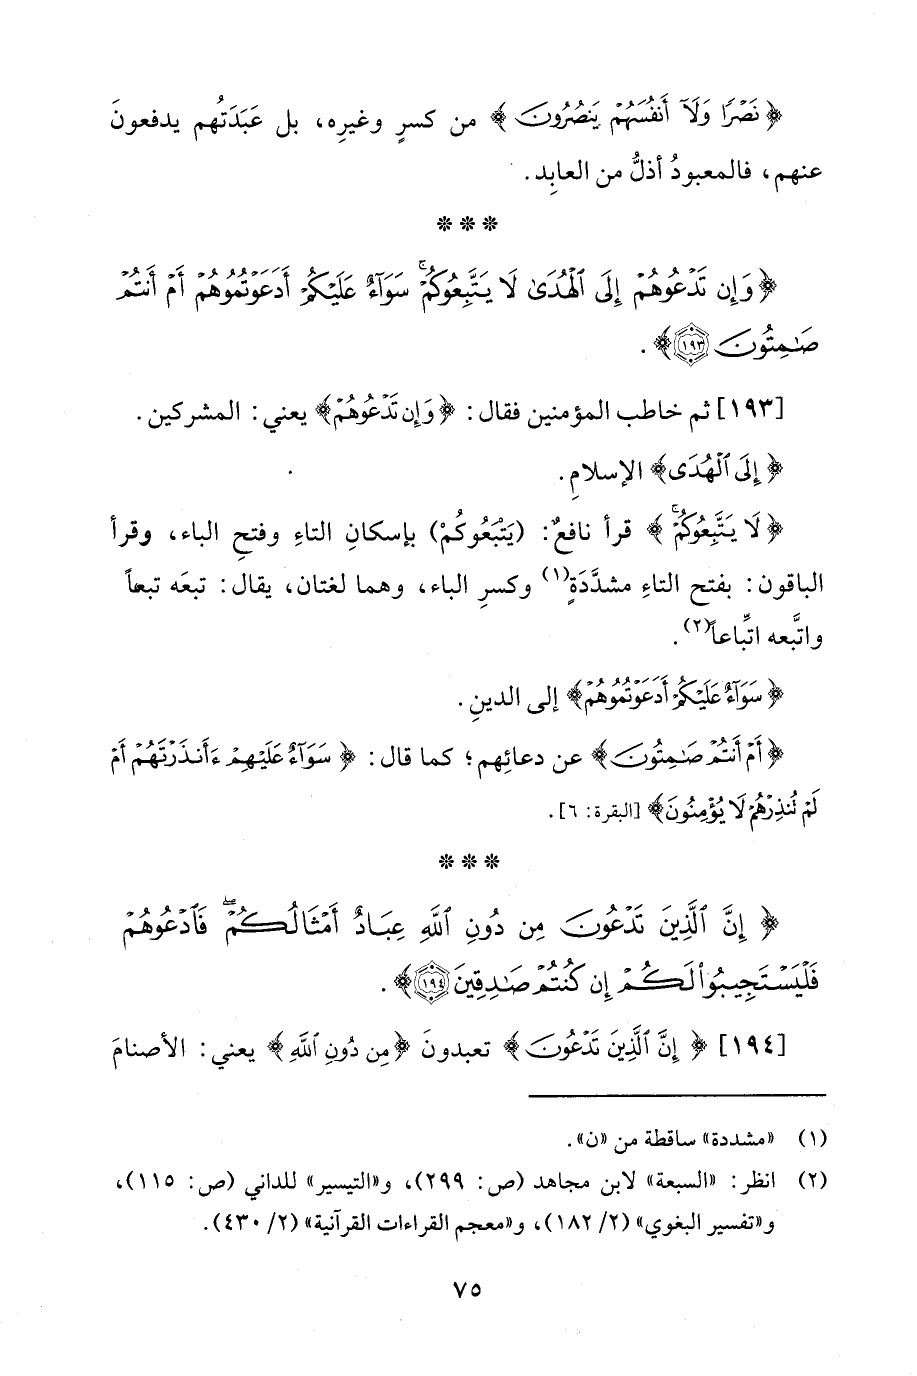 ﴿ نَصْرًا وَلَآ أَنفُسَهُمْ يَنصُرُونَ ﴾ من كسرٍ وغيرِه، بل عَبَدَتُهم يدفعونَ
عنهم، فالمعبودُ أذلُّ من العابِد.
* * *
﴿ وَإِن تَدْعُوهُمْ إِلَى ٱلْهُدَىٰ لَا يَتَّبِعُوكُمْ ۚ سَوَآءٌ عَلَيْكُمْ أَدَعَوْتُمُوهُمْ أَمْ أَنتُمْ
صَٰمِتُونَ ١٩٣ ﴾.
[١٩٣] ثم خاطب المؤمنين فقال: ﴿ وَإِن تَدْعُوهُمْ ﴾ يعني: المشركين.
﴿ إِلَى ٱلْهُدَى ﴾ الإسلامِ.
﴿ لَا يَتَّبِعُوكُمْ ۚ ﴾ قرأ نافعٌ: (يَتْبَعُوكُمْ) بإسكانِ التاءِ وفتحِ الباء، وقرأ
الباقون: بفتح التاءِ مشدَّدَةٍ(١) وكسرِ الباء، وهما لغتان، يقال: تبعَه تبعاً
واتَّبعه اتِّباعاً(٢).
﴿ سَوَآءٌ عَلَيْكُمْ أَدَعَوْتُمُوهُمْ ﴾ إلى الدينِ.
﴿ أَمْ أَنتُمْ صَٰمِتُونَ ﴾ عن دعائِهم؛ كما قال: ﴿ سَوَآءٌ عَلَيْهِمْ ءَأَنذَرْتَهُمْ أَمْ
لَمْ تُنذِرْهُمْ لَا يُؤْمِنُونَ ﴾ [البقرة: ٦].
* * *
﴿ إِنَّ ٱلَّذِينَ تَدْعُونَ مِن دُونِ ٱللَّهِ عِبَادٌ أَمْثَالُكُمْ ۖ فَٱدْعُوهُمْ
فَلْيَسْتَجِيبُوا۟ لَكُمْ إِن كُنتُمْ صَٰدِقِينَ ١٩٤ ﴾.
[١٩٤] ﴿ إِنَّ ٱلَّذِينَ تَدْعُونَ ﴾ تعبدونَ ﴿ مِن دُونِ ٱللَّهِ ﴾ يعني: الأصنامَ
(١) «مشددة» ساقطة من «ن».
(٢) انظر: «السبعة» لابن مجاهد (ص: ٢٩٩)، و«التيسير» للداني (ص: ١١٥)،
و«تفسير البغوي» (٢/ ١٨٢)، و«معجم القراءات القرآنية» (٢/ ٤٣٠).
٧٥